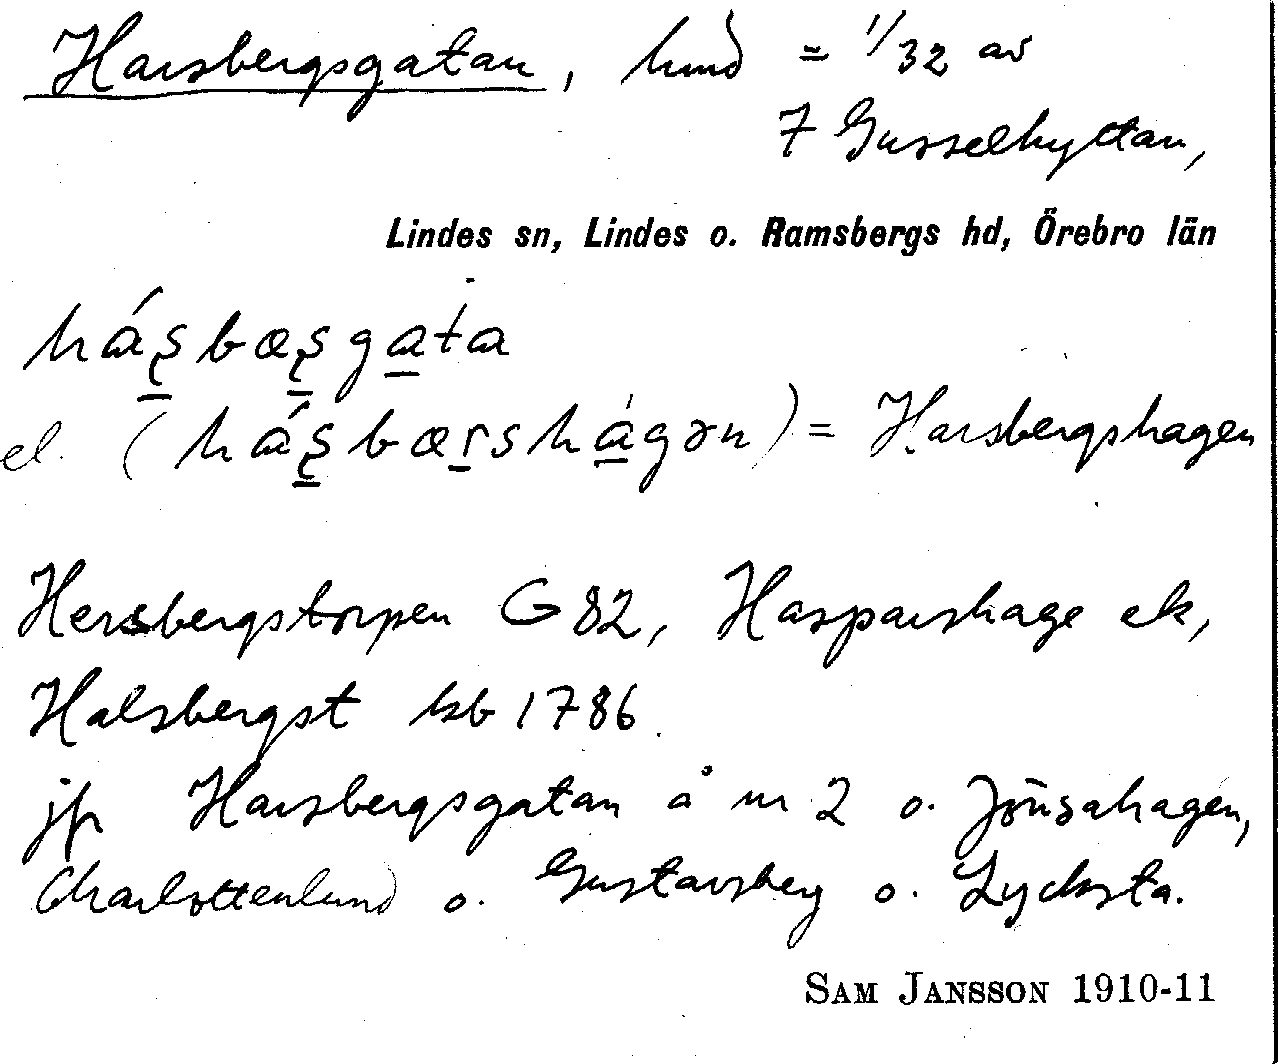 Harsbergsgatan, hmd = 1/32 av
7 Gusselhyttan,
Lindes sn, Lindes o. Ramsbergs hd, Örebro län
hás̠bæs̠ga̠ta
el. (hás̠bær̠shága̠ən) = Harsbergshagen
Hersbergstorpen G 82, Hasparshage ek,
Halsbergst kb 1786.
jfr Harsbergsgatan å nr 2 o. Jönsahagen,
Charlottenlund o. Gustavsberg o. Lycksta.
SAM JANSSON 1910-11